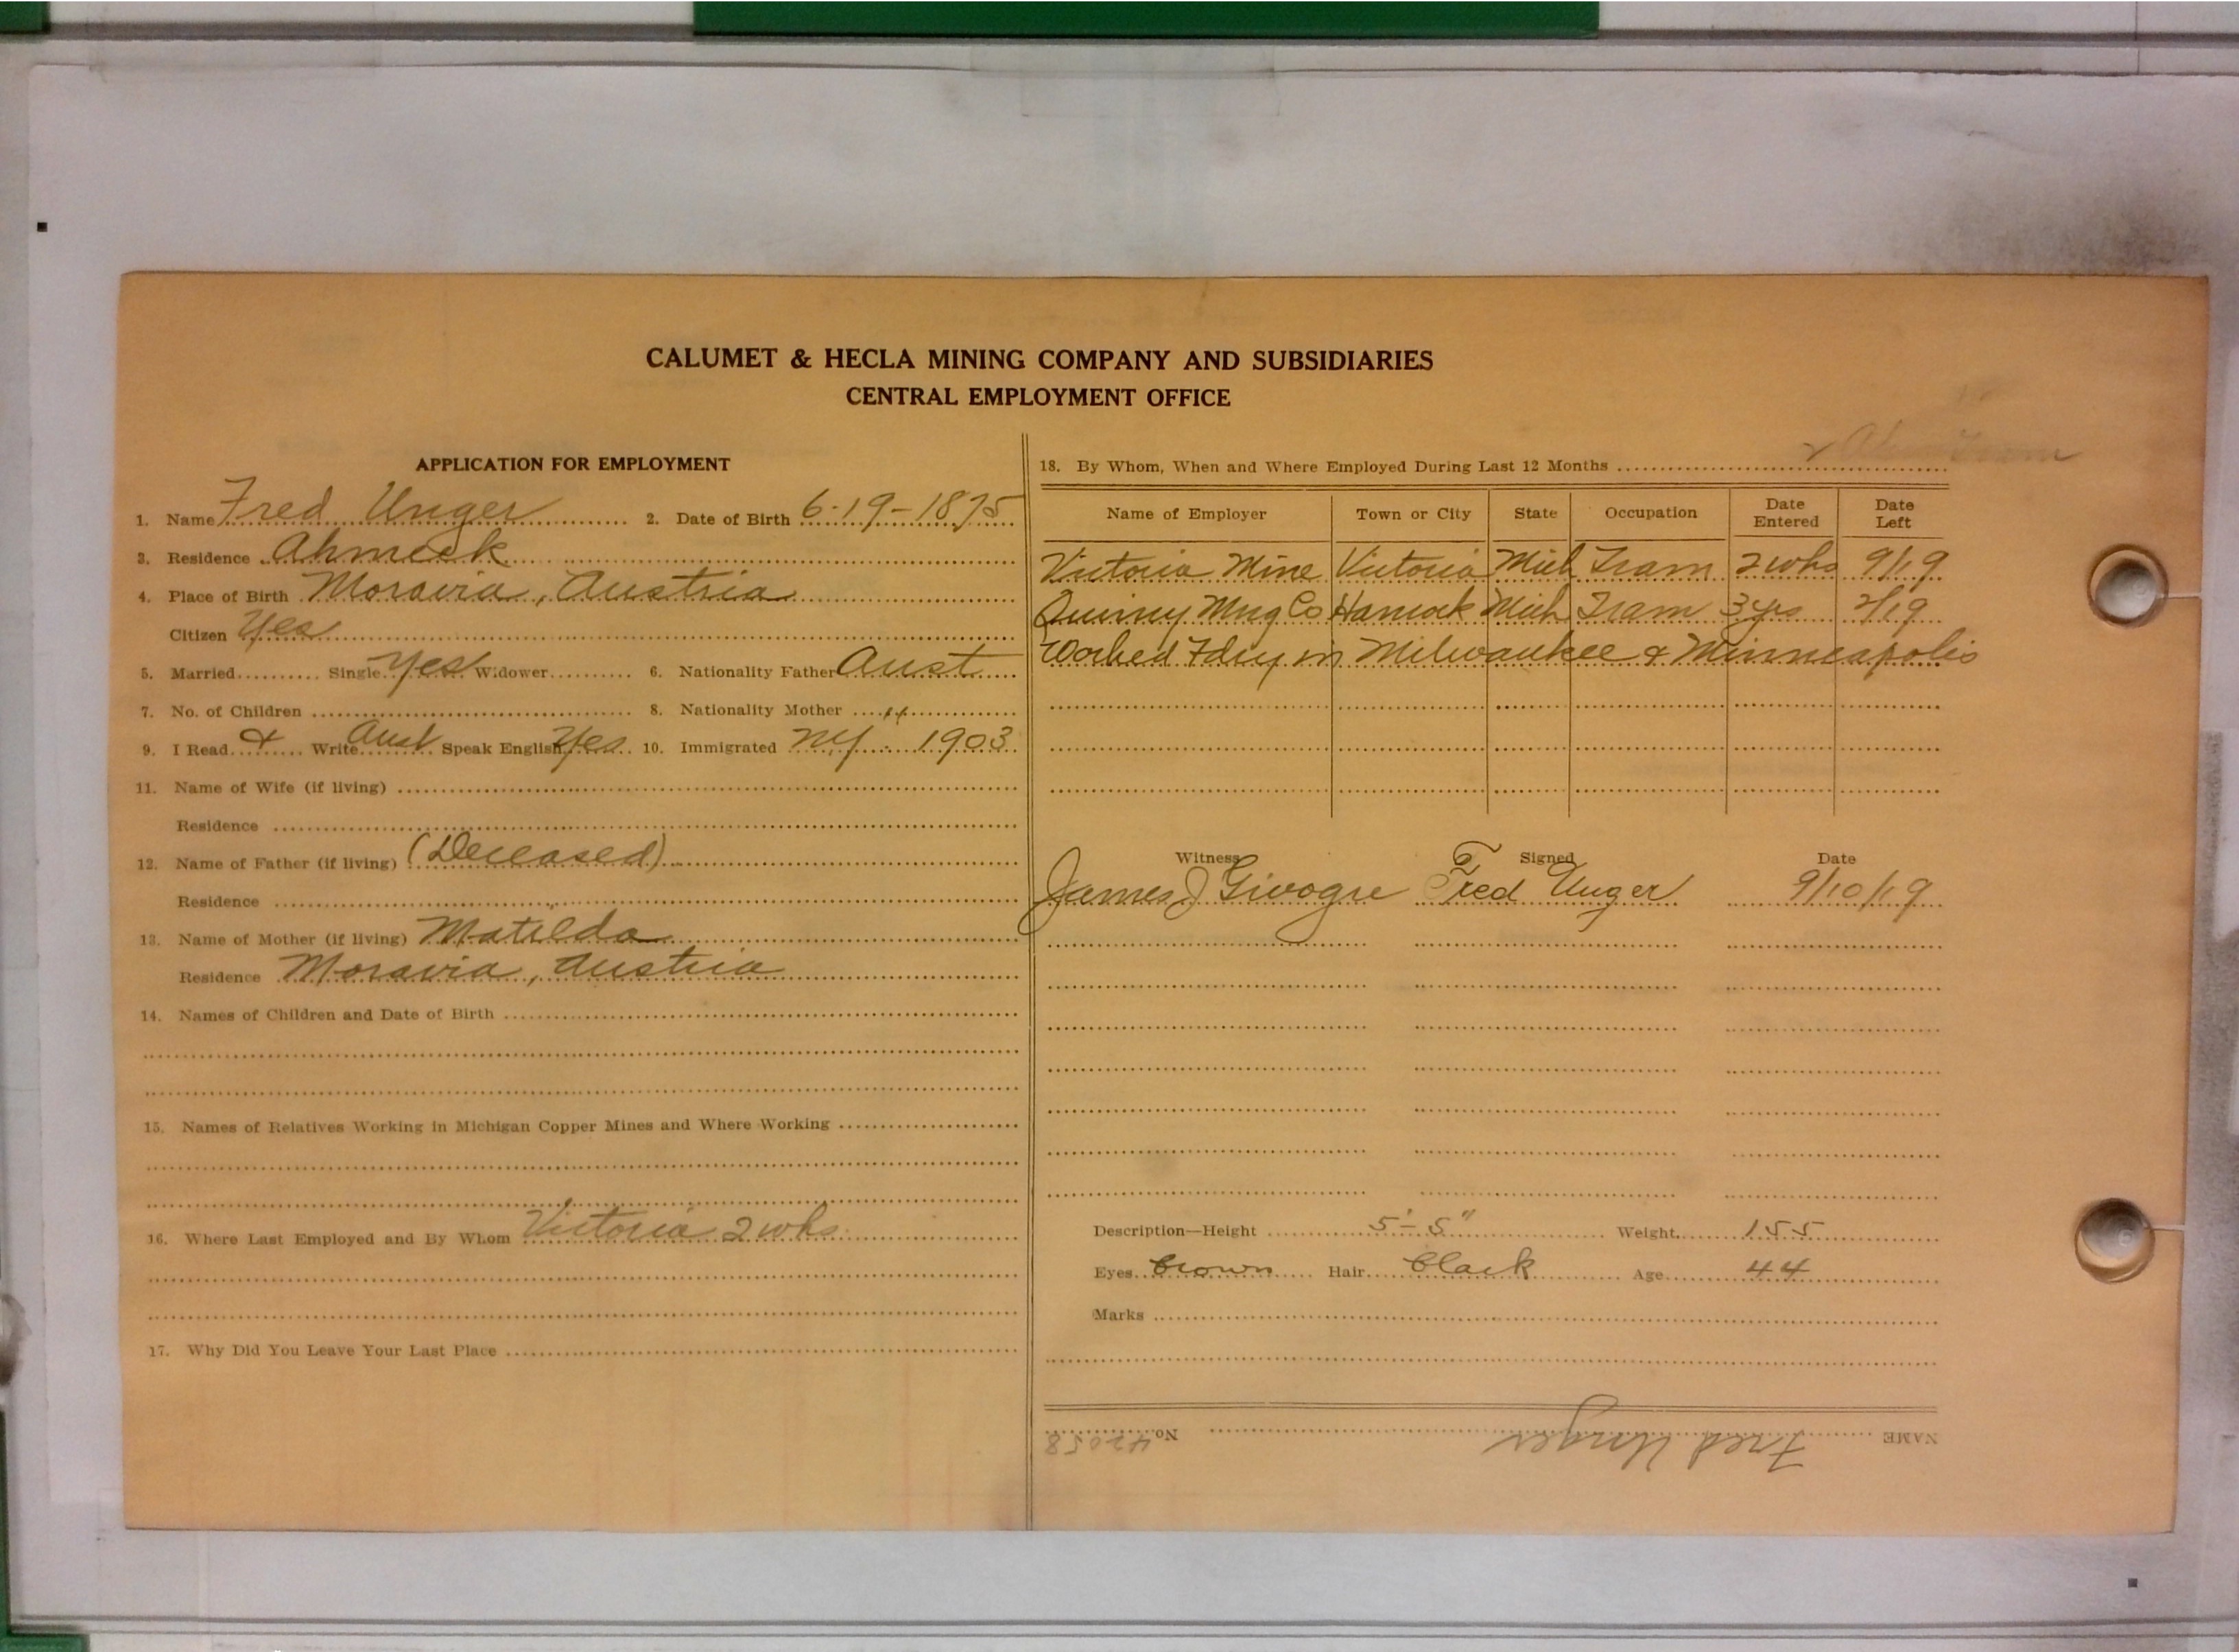 CALUMET & HECLA MINING COMPANY AND SUBSIDIARIES
CENTRAL EMPLOYMENT OFFICE
APPLICATION FOR EMPLOYMENT
1. Name Fred Unger 2. Date of Birth 6-19-1875
3. Residence Ahmeek
4. Place of Birth Moravia, Austria
Citizen Yes
5. Married Single Yes Widower 6. Nationality Father Aust
7. No. of Children 8. Nationality Mother "
9. I Read & Write Aust Speak English Yes 10. Immigrated NY 1903
11. Name of Wife (if living)
Residence
12. Name of Father (if living) (Deceased)
Residence
13. Name of Mother (if living) Matilda
Residence Moravia, Austria
14. Names of Children and Date of Birth
15. Names of Relatives Working in Michigan Copper Mines and Where Working
16. Where Last Employed and By Whom Victoria 2 wks
17. Why Did You Leave Your Last Place
18. By Whom, When and Where Employed During Last 12 Months
Name of Employer Town or City State Occupation Date Entered Date Left
Victoria Mine Victoria Mich Tram 2 wks 9/19
Quincy Mng Co Hancock Mich Tram 3 yrs 2/19
Worked Fdry in Milwaukee & Minneapolis
Witness Signed Date
James J Givogre Fred Unger 9/10/19
Description—Height 5'-5" Weight 155
Eyes brown Hair black Age 44
Marks
NAME Fred Unger No. 42058